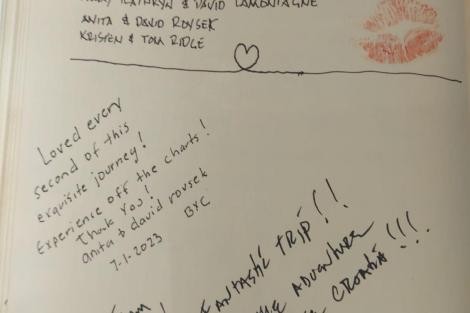 KATHRYN & DAVID LAMONTAGNE
ANITA & DAVID ROVSEK
KRISTEN & TOM RIDGE
Loved every
second of this
exquisite journey!
Experience off the charts!
Thank You!
anita & david rovsek
7-1-2023 BYC
FANTASTIC TRIP!!
ADVENTURE
CROATIA!!!